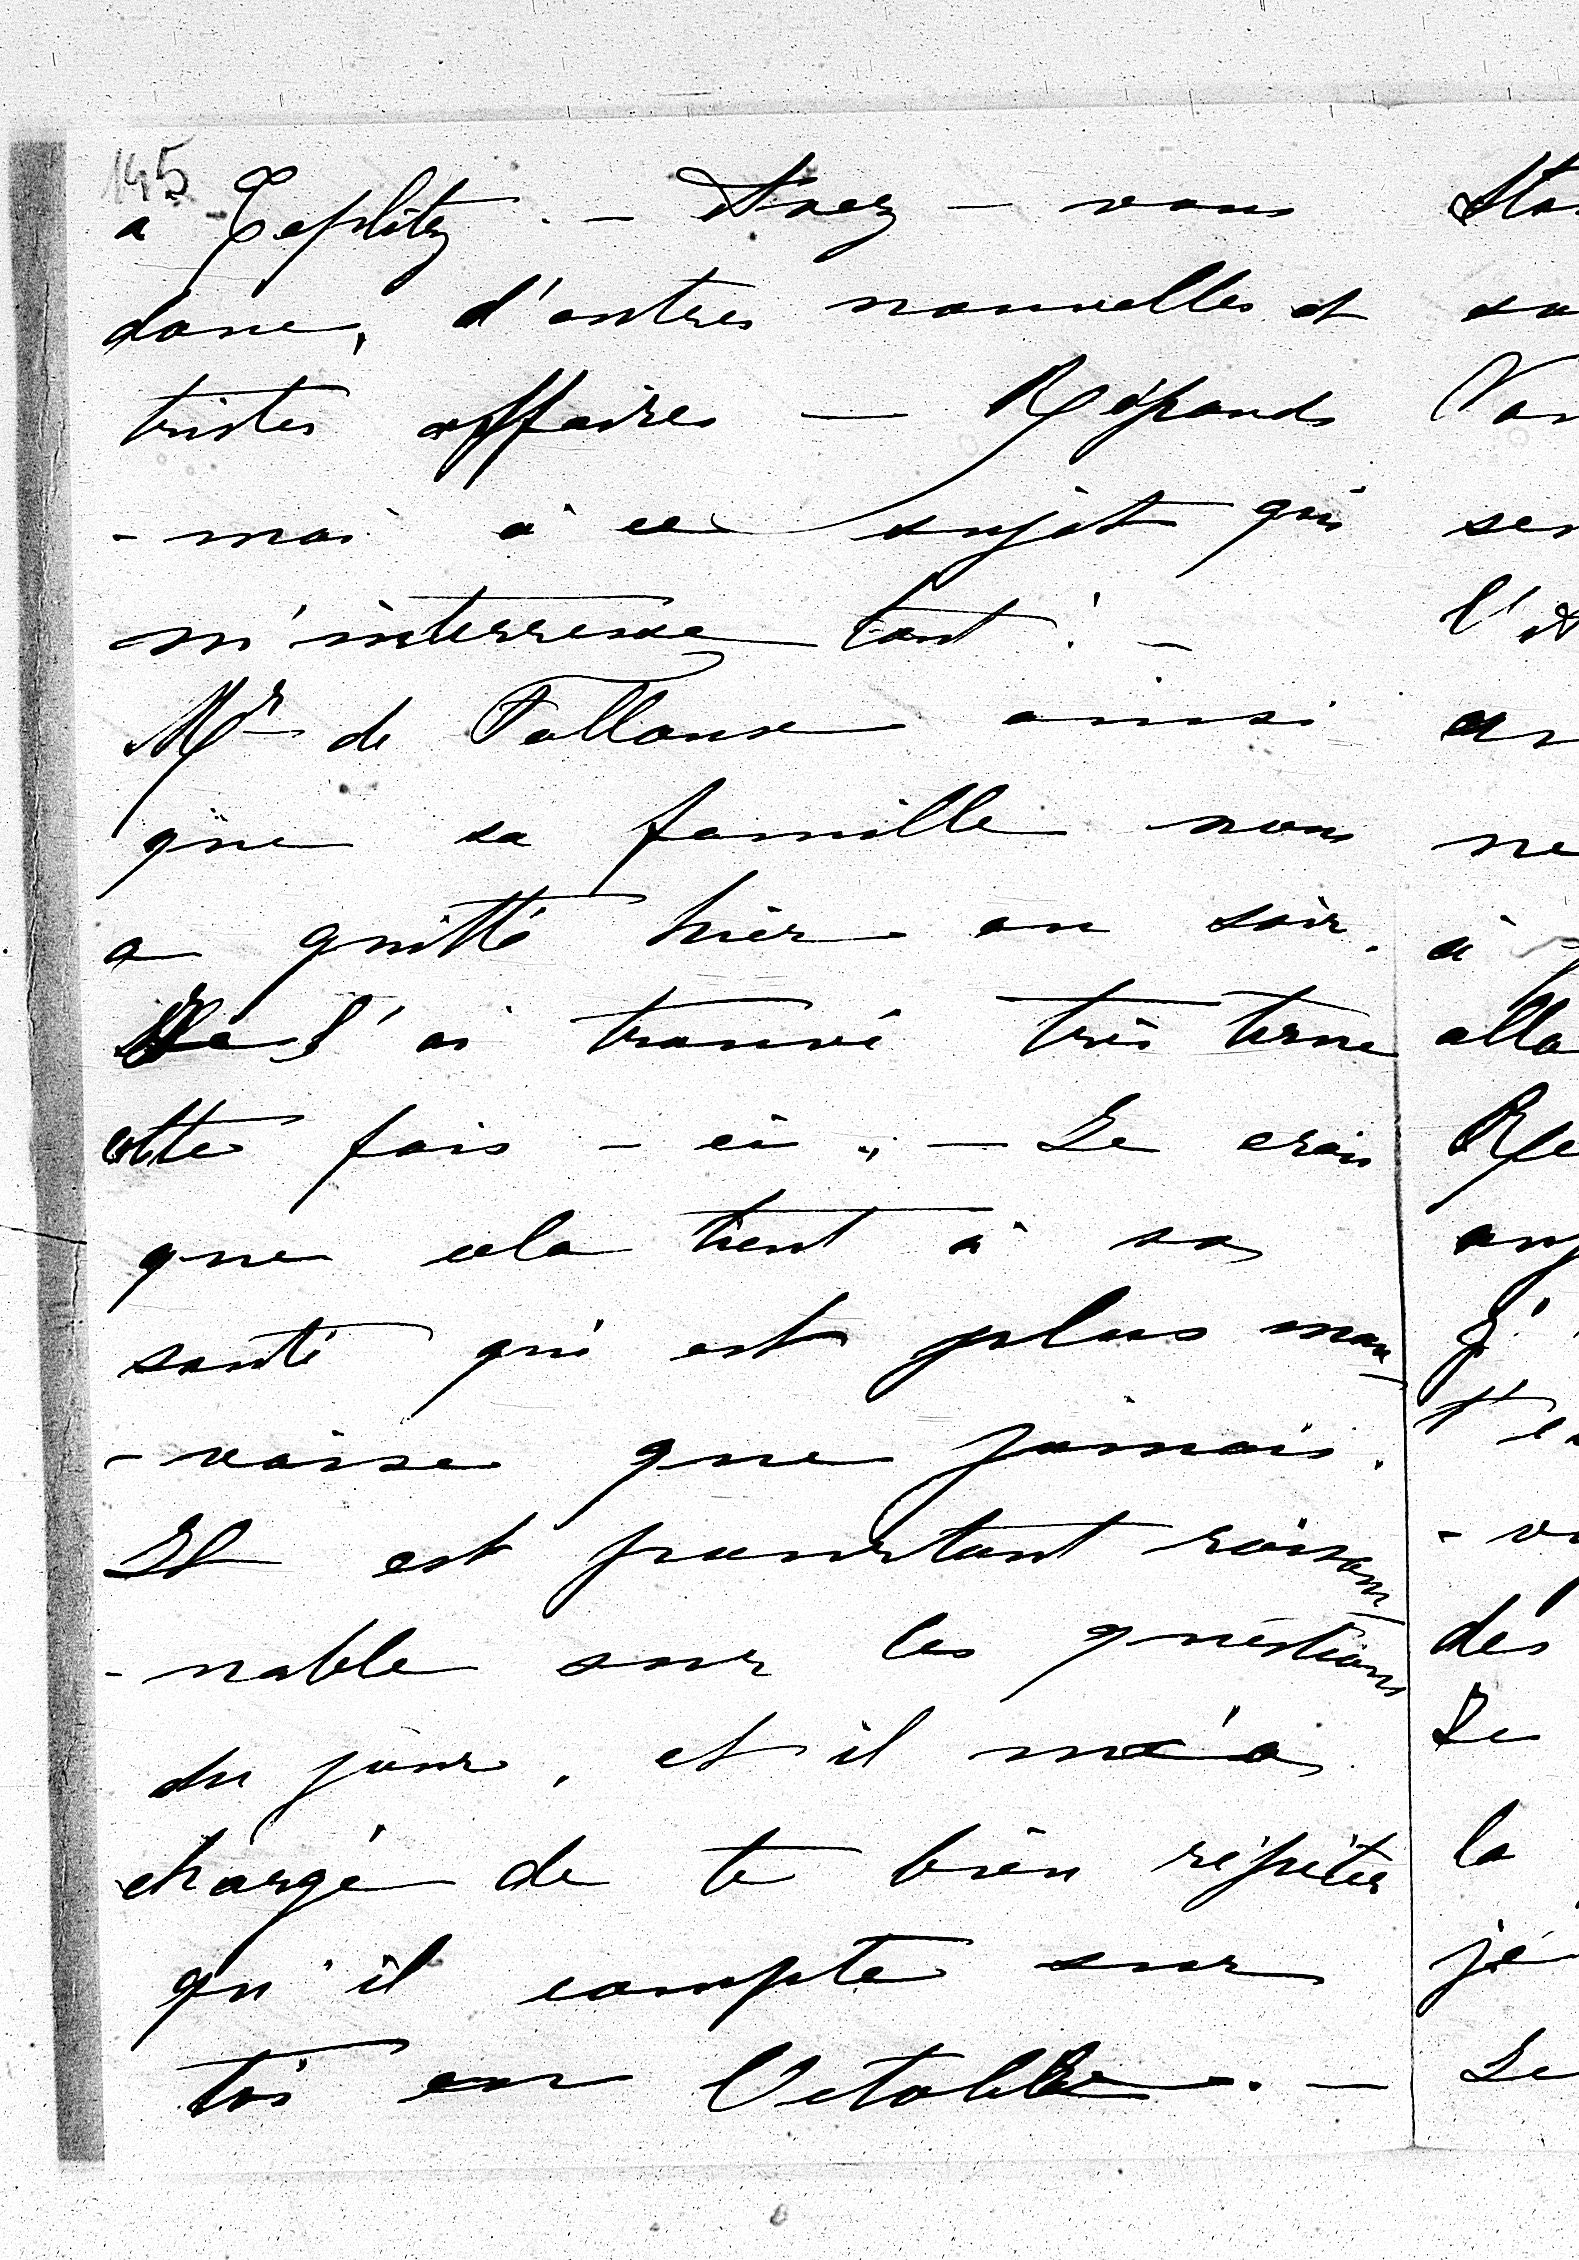 145
a Teplitz. - Avez - vous
donc, d'autres nouvelles et
tristes affaires — Réponds
- moi à ce sujet qui
m'interresse tant! -
Mr de Falloux ainsi
que sa famille nous
a quitté hier au soir.
l'ai trouvé très terne
cette fois - ci „ — Je crois
que cela tient à sa
santé qui est plus mau-
- vaise que jamais.
Il est pourtant raison-
- nable sur les questions
du jour, et il m'a
chargé de te bien répéter
qu'il compte sur
toi en Octobre. —
ser
à
Re
J'
- v
des
Je
la
je
Je